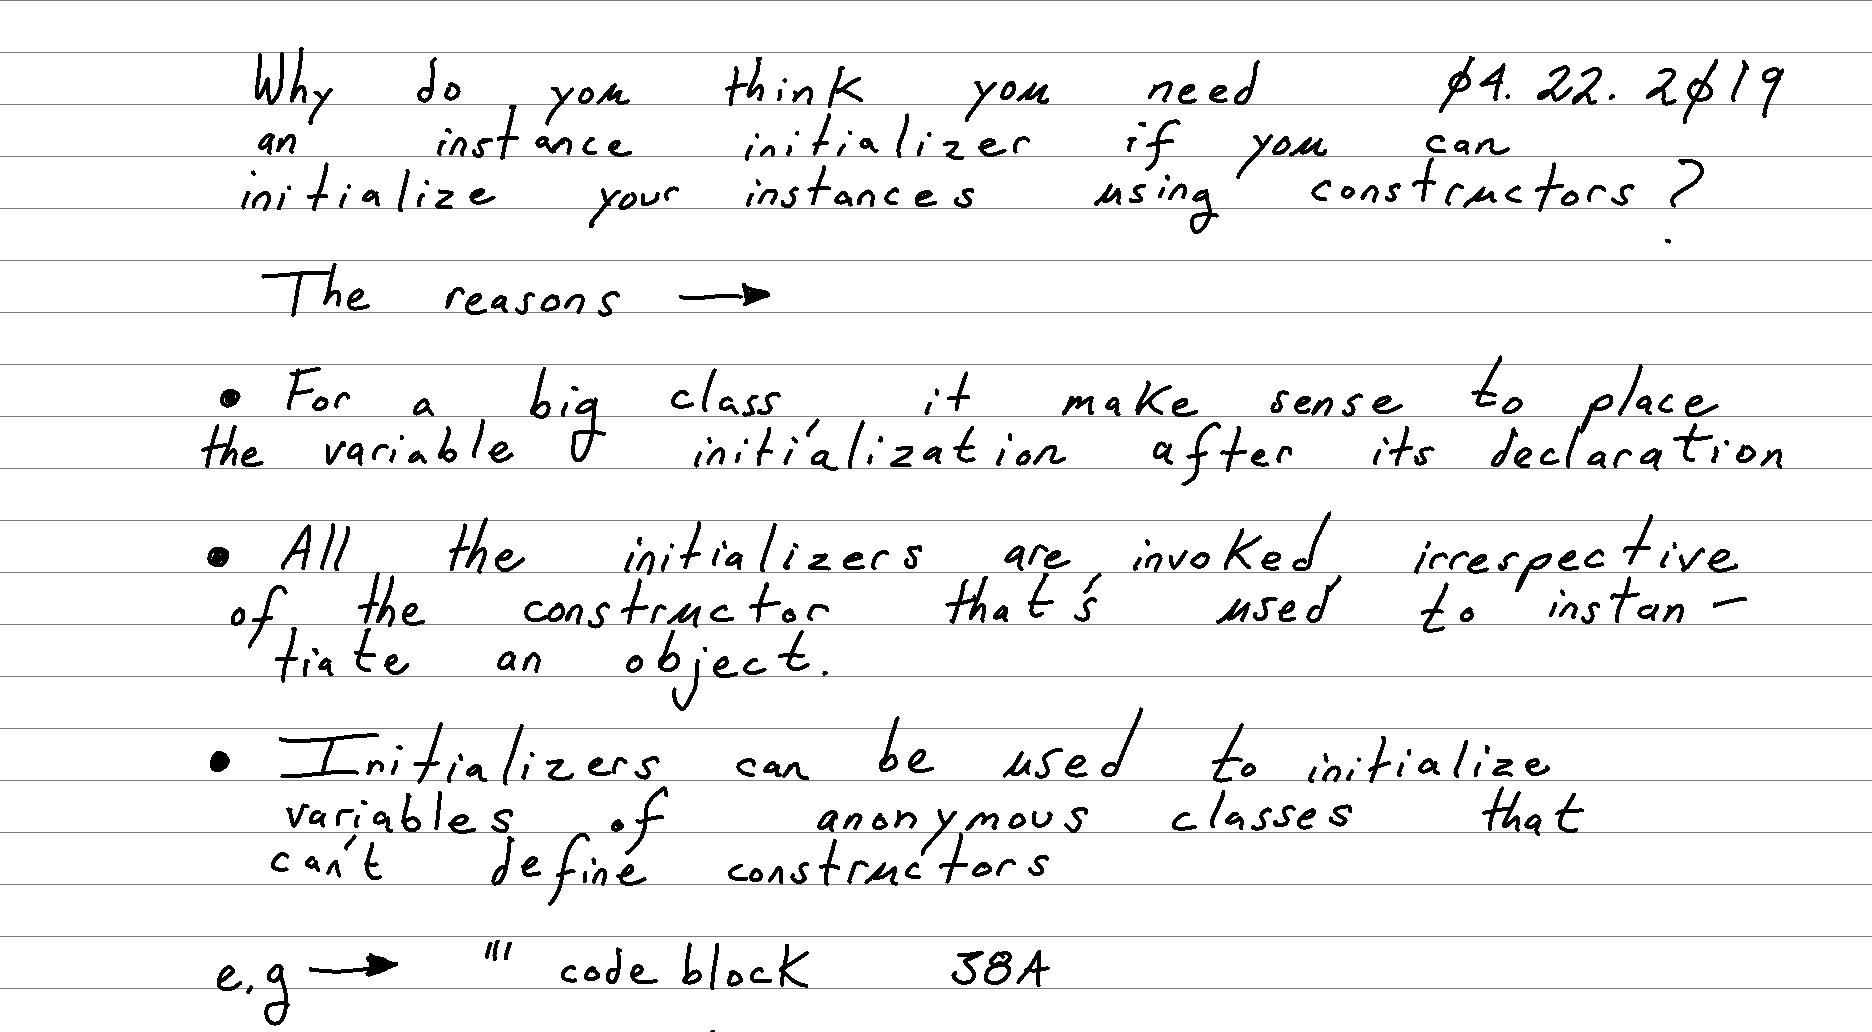 Why do you think you need 04.22.2019
an instance initializer if you can
initialize your instances using constructors?
The reasons →
• For a big class, it make sense to place
the variable initialization after its declaration
• All the initializers are invoked irrespective
of the constructor that's used to instan-
tiate an object.
• Initializers can be used to initialize
variables of anonymous classes that
can't define constructors
e.g → ''' code block 38A